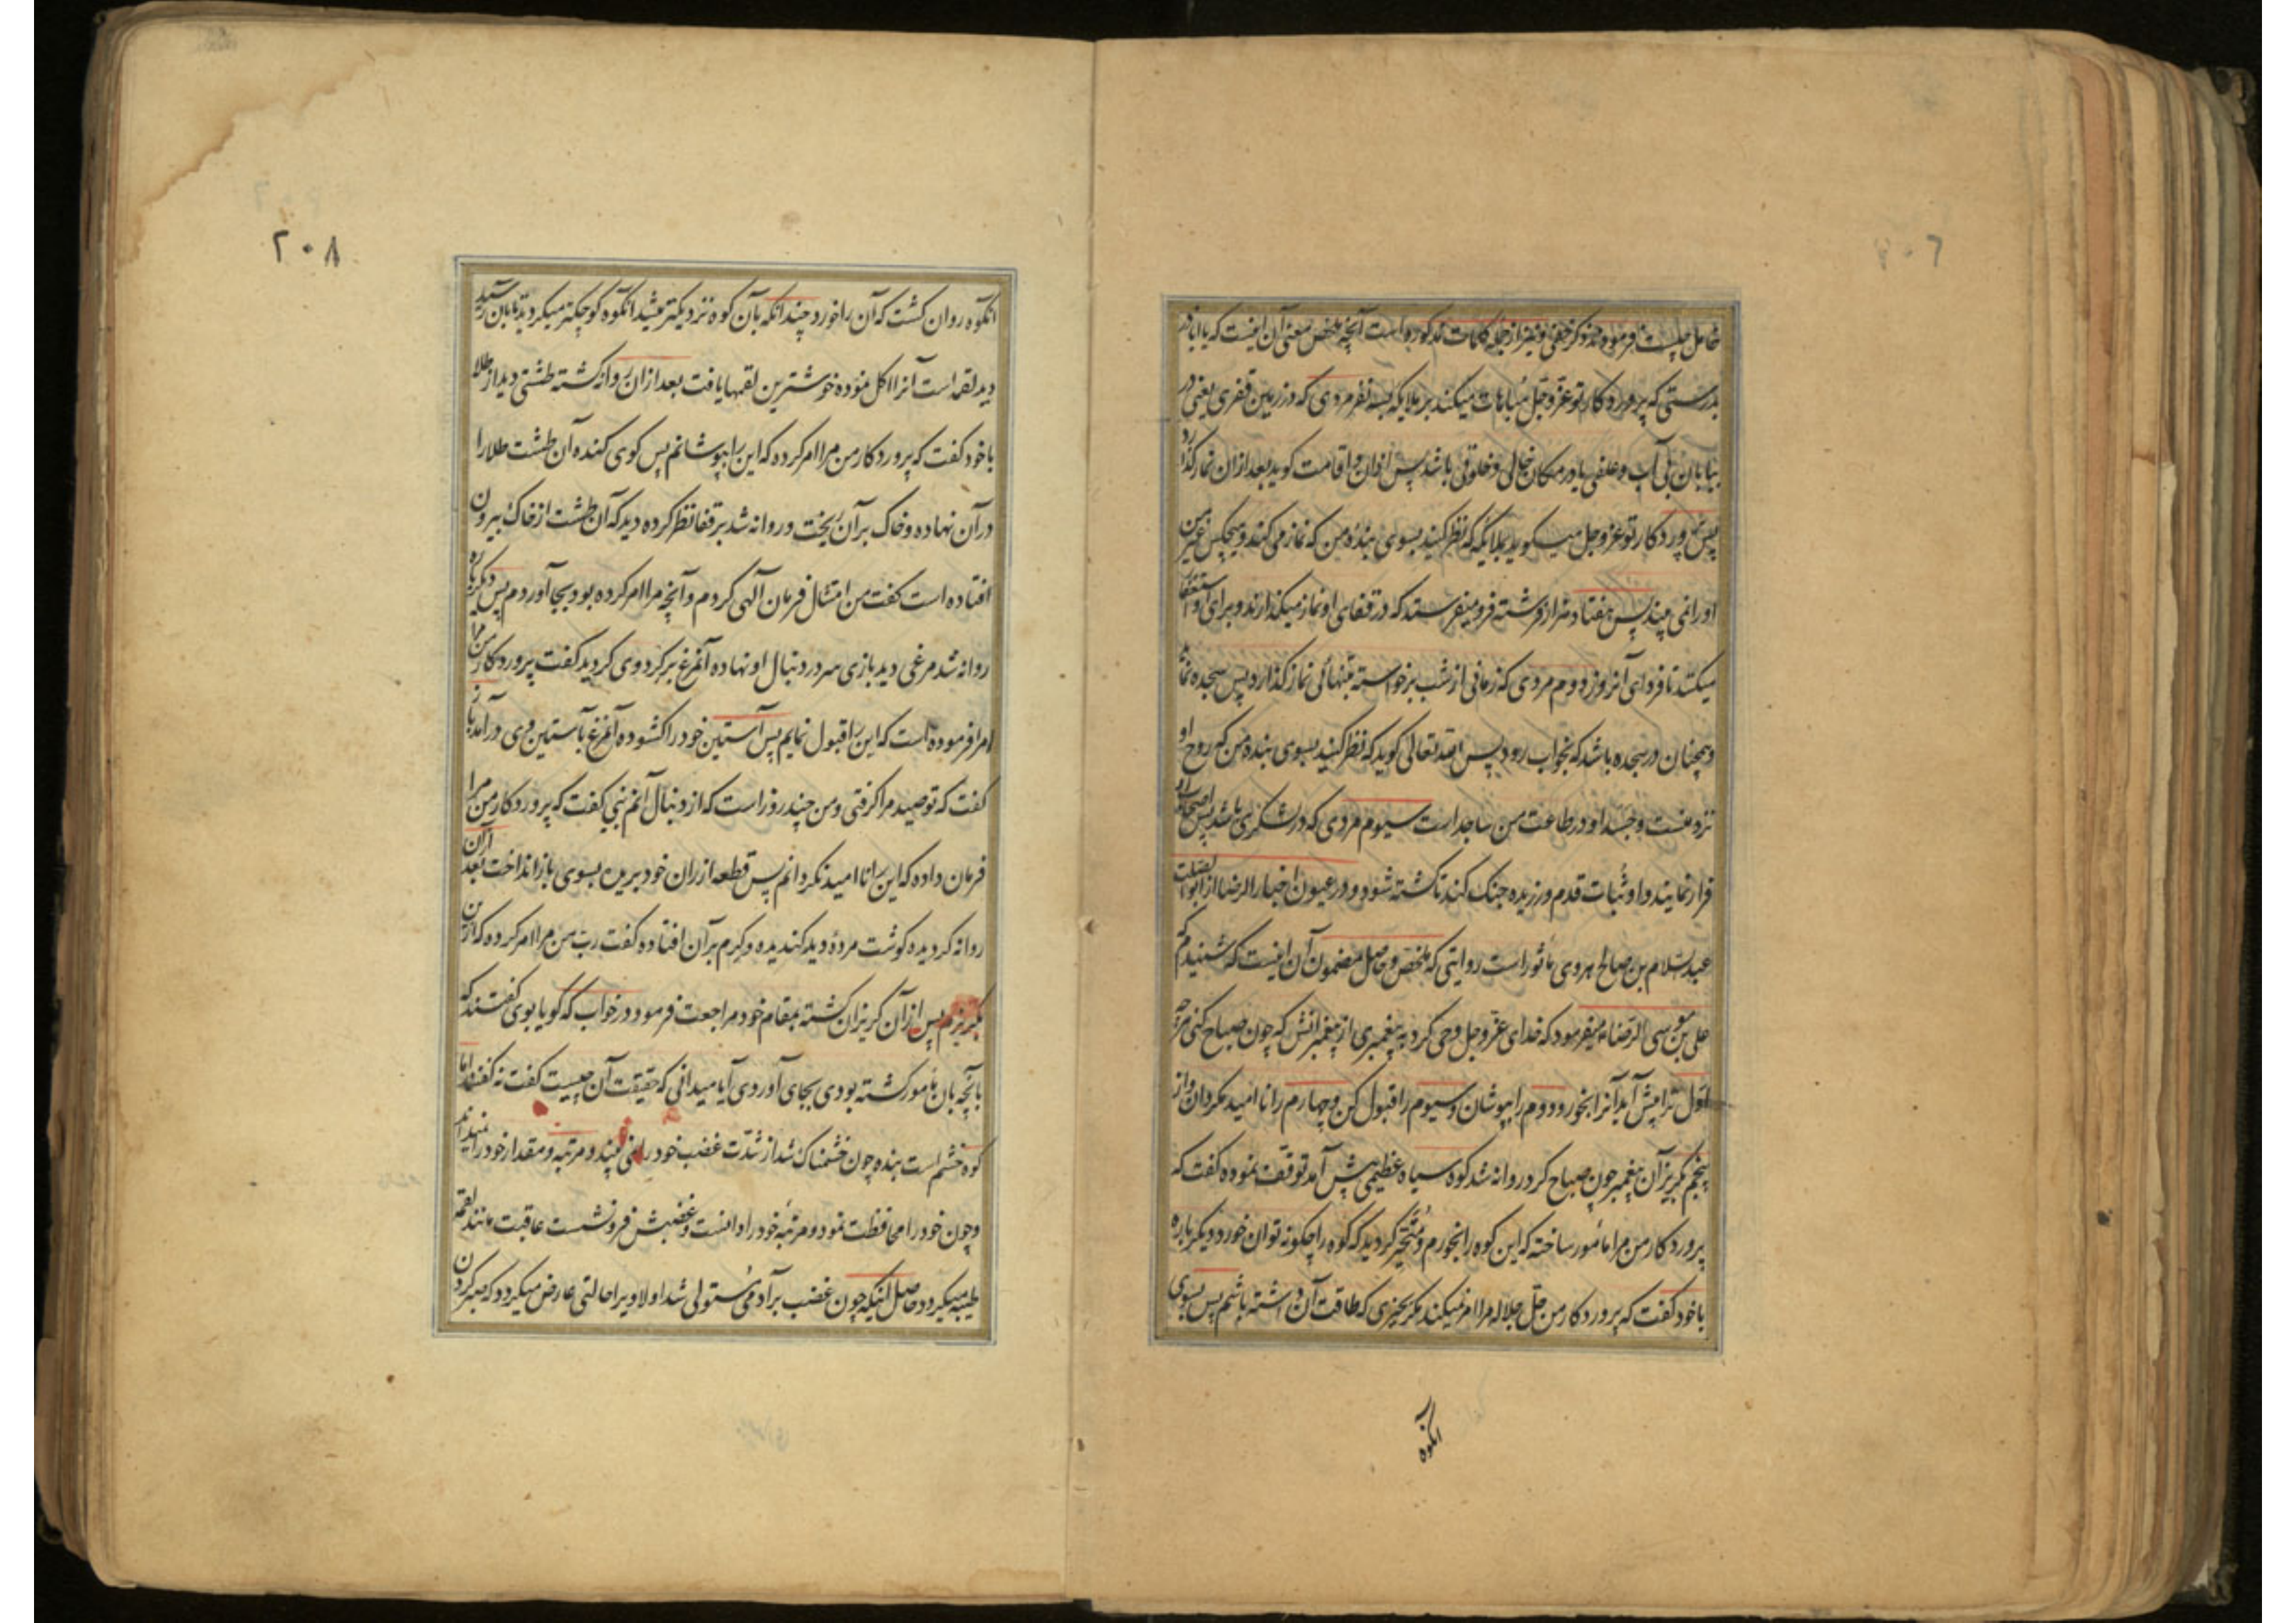 خامل چیست فرمودند ذکر خفی و نیز از جمله کلمات مذکوره است آنچه ملخص معنی آن اینست که یا اباذر
بدرستی که پروردکار تو عز و جل مباهات میکند بر ملایکه بسه نفر مردی که در زمین قفری یعنی در
بیابان بی آب و علفی یا در مکان خالی و خلوتی باشد پس اذان و اقامت کوید بعد از ان نماز کذارد
پس پروردکار تو عز و جل میکوید بملائکه که نظر کنید بسوی بنده من که نماز می کند و هیچکس غیر من
او را نمی بیند پس هفتاد هزار فرشته فرو میفرستد که در قفای او نماز میکذارند و برای او استغفار
میکنند تا فردای آنروز دووم مردی که زمانی از شب برخواسته بتنهائی نماز کذارد پس سجده نماید
و همچنان در سجده باشد که بخواب رود پس الله تعالی کوید که نظر کنید بسوی بنده من که روح او
نزد منست و جسد او در طاعت من ساجد است سیوم مردی که در لشکری باشد پس اصحاب او
فرار نمایند و او ثبات قدم ورزیده جنک کند تا کشته شود و در عیون اخبار الرضا از ابوالصلت
عبد السلام بن صالح هروی ماثور است روایتی که ملخص و حاصل مضمون آن اینست که شنیدم که
علی بن موسی الرضا میفرمود که خدای عز و جل وحی کرد به پیغمبری از پیغمبرانش که چون صباح کنی هر چه
اول ترا پیش آید آنرا بخور و دووم را بپوشان و سیوم را قبول کن و چهارم را نا امید مکردان و از
پنجم بکریز آن پیغمبر چون صباح کرد روانه شد کوه سیاه عظیمی پیش آمد توقف نموده کفت که
پروردکار من مرا مأمور ساخته که این کوه را بخورم و متحیر کردید که کوه را چکونه توان خورد دیکر باره
با خود کفت که پروردکار من جل جلاله مرا امر نمیکند مکر بچیزی که طاقت آن داشته باشم پس بسوی
انکوه
۲۰۸
انکوه روان کشت که آن را خورد چندانکه بآن کوه نزدیکتر میشد انکوه کوچکتر میکردید تا بآن رسید
دید لقمه است آنرا اکل نموده خوشترین لقمها یافت بعد از ان روانه کشته طشتی دید از طلا
با خود کفت که پروردکار من مرا امر کرده که این را بپوشانم پس کوی کنده آن طشت طلا را
در آن نهاده و خاک بر آن ریخت و روانه شد بر قفا نظر کرده دید که آن طشت از خاک بیرون
افتاده است کفت من امتثال فرمان آلهی کردم و آنچه مرا امر کرده بود بجا آوردم پس دیکر باره
روانه شد مرغی دید بازی سر در دنبال او نهاده آنمرغ بر کرد وی کردید کفت پروردکار من مرا
امر فرموده است که این را قبول نمایم پس آستین خود را کشوده آنمرغ بآستین وی درآمد باز
کفت که تو صید مرا کرفتی و من چند روز است که از دنبال آنم نبی کفت که پروردکار من مرا
فرمان داده که این را نا امید نکردانم پس قطعه از ران خود بریده بسوی باز انداخت بعد از آن
روانه کردیده کوشت مرده دید کندیده و کرم بر آن افتاده کفت رب من مرا امر کرده که از این
بکریزم پس از آن کریزان کشته بمقام خود مراجعت فرمود و در خواب که کویا بوی کفتند که
بآنچه بآن مأمور کشته بودی بجای آوردی آیا میدانی که حقیقت آن چیست کفت نه کفتند اما
کوه خشم است بنده چون خشمناک شد از شدت غضب خود را نمی بیند و مرتبه و مقدار خود را نمیداند
و چون خود را محافظت نمود و مرتبه خود را دانست و غضبش فرو نشست عاقبت مانند لقمه
طیبه میکردد حاصل اینکه چون غضب بر آدمی مستولی شد اولا ویرا حالتی عارض میکردد که صبر کردن